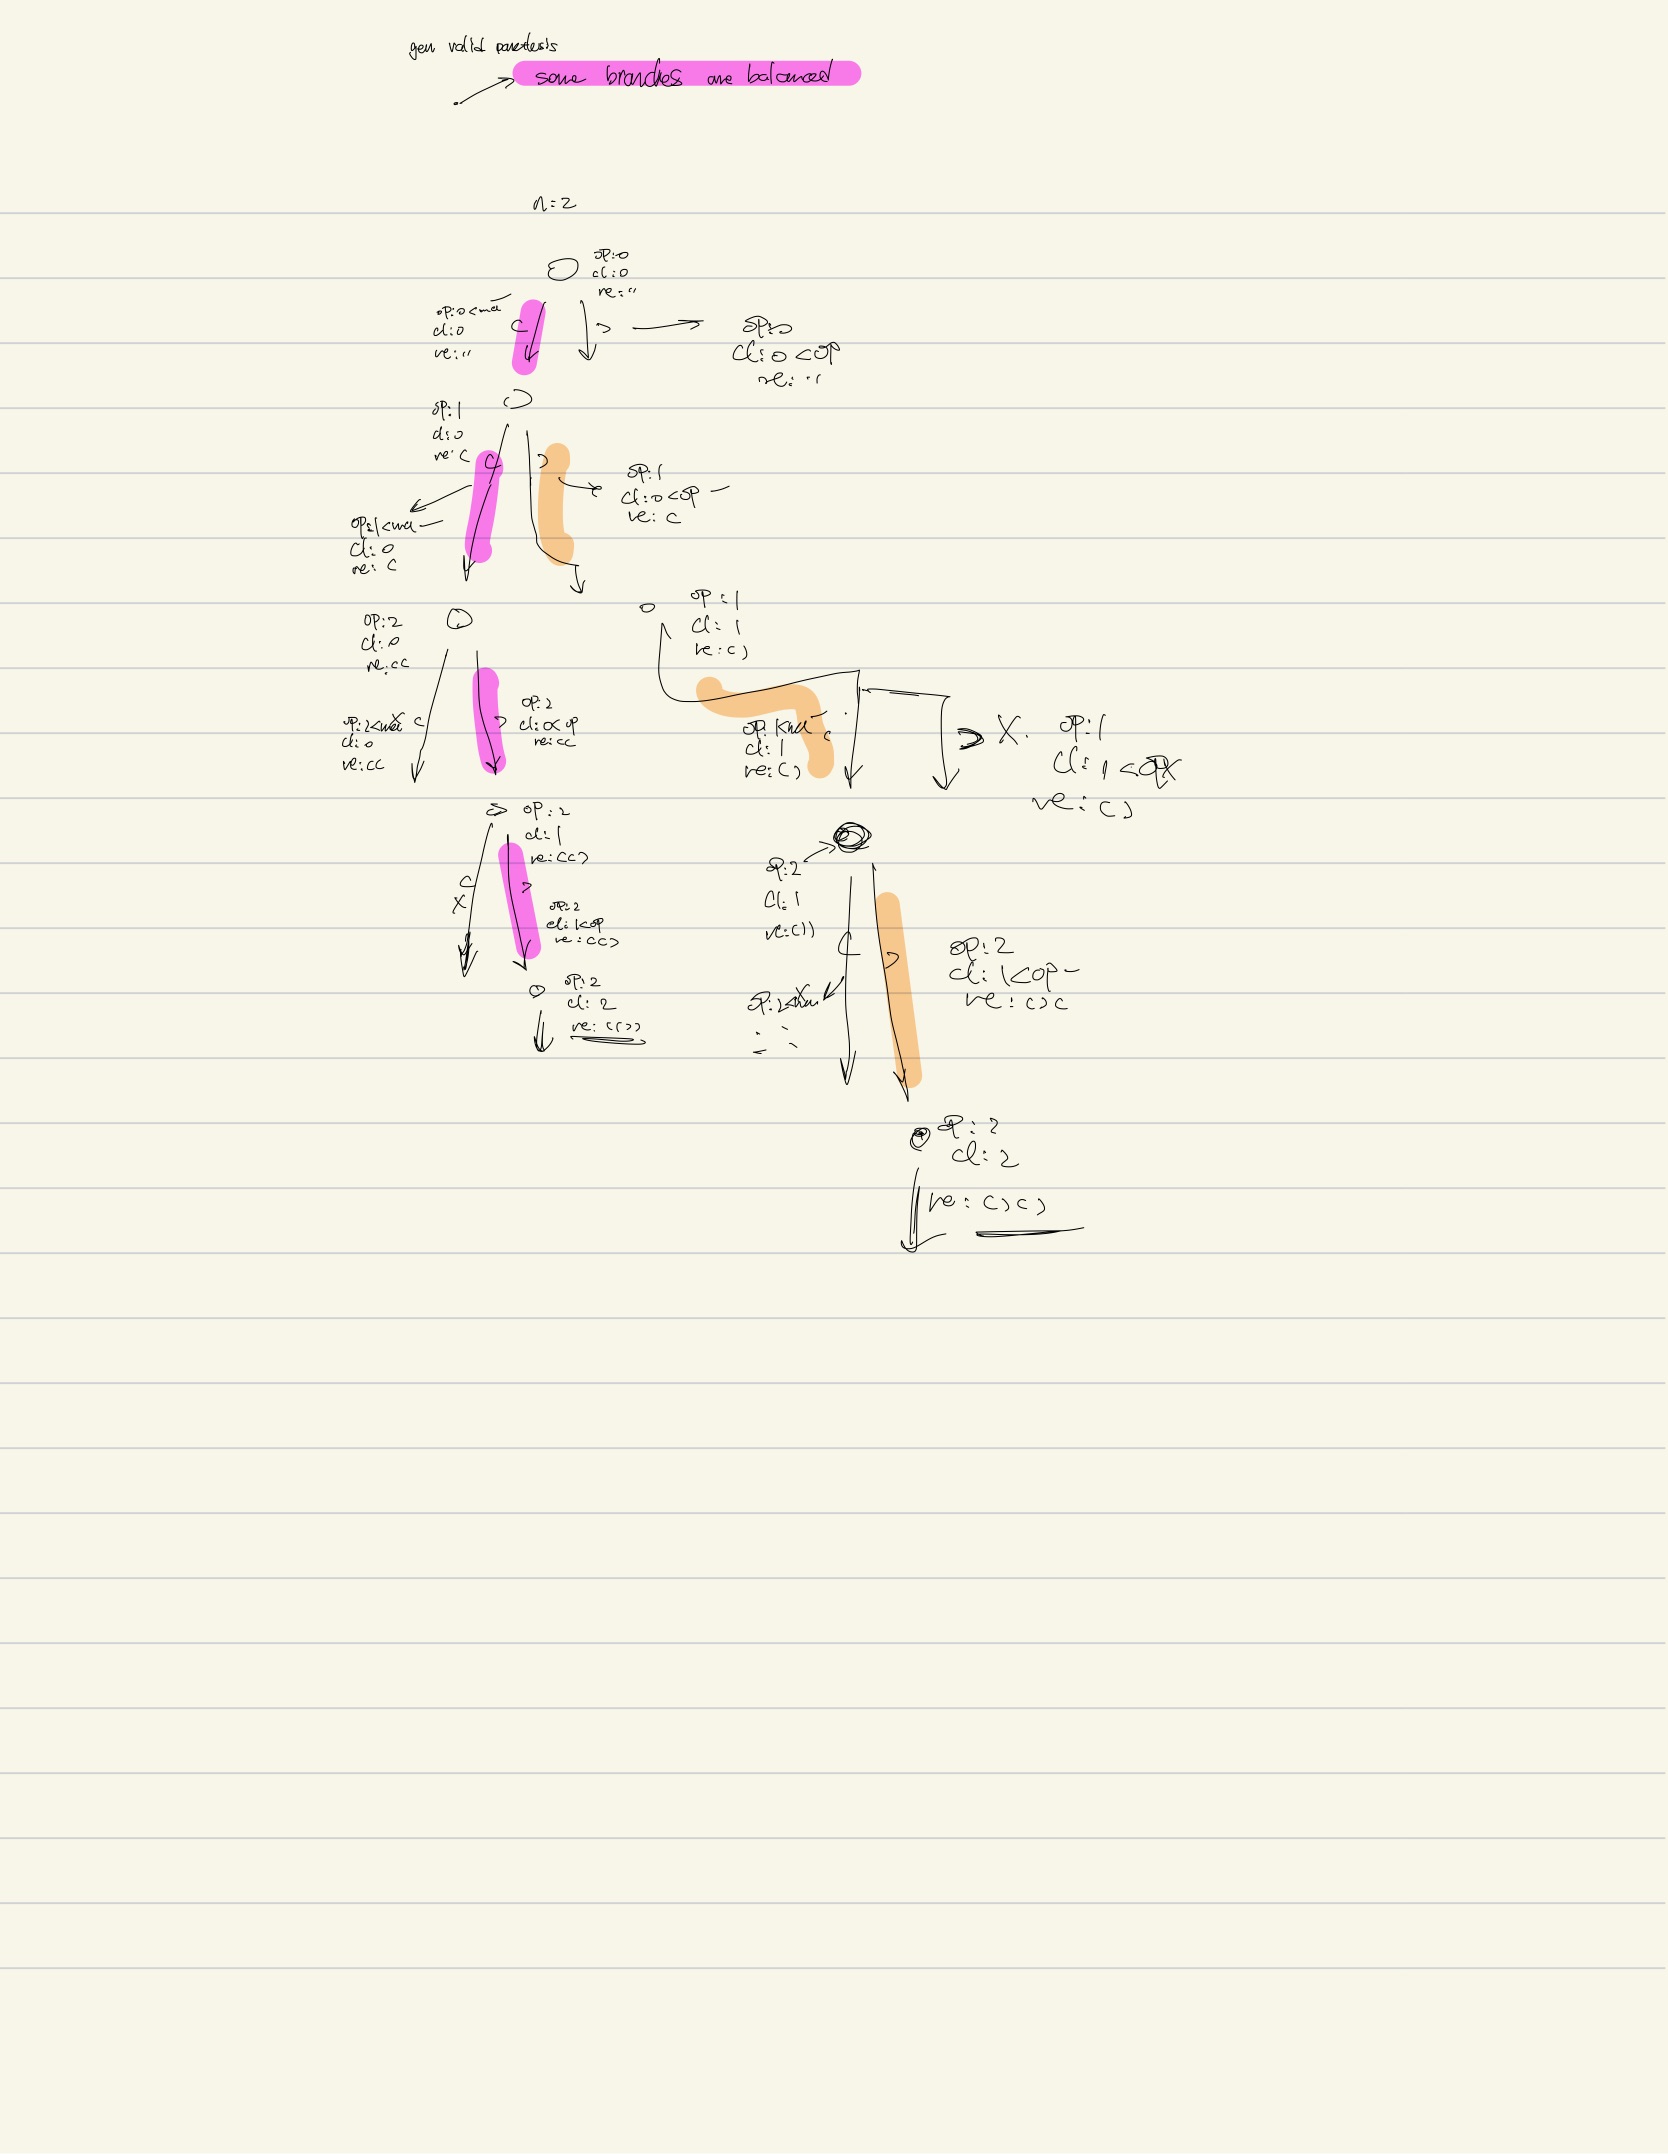 gen valid parentesis
some branches are balanced
n=2
op:0
cl:0
re:"
op:0<
cl:0
re:"
(
)
op:0
cl:0<op
re:"
op:1
cl:0
re:(
(
)
op:1
cl:0<op
re:(
op:1<
cl:0
re:(
op:2
cl:0
re:((
op:1
cl:1
re:()
op:2<
cl:0
re:((
(
)
op:2
cl:0<op
re:((
op:1<
cl:1
re:()
(
) X.
op:1
cl:1<op X
re:()
op:2
cl:1
re:(()
(
X
)
op:2
cl:1<op
re:(()
op:2
cl:1
re:())
(
)
op:2
cl:1<op
re:()(
op:2
cl:2
re:(())
op:2<
op:2
cl:2
re:()()